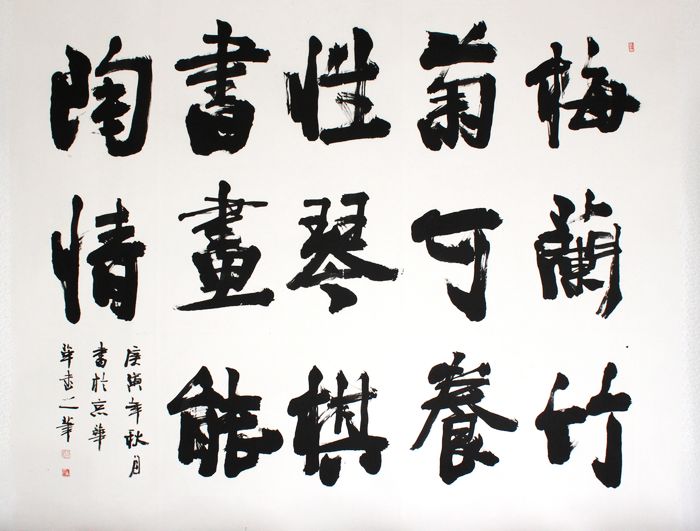 梅蘭竹
菊可養
性琴棋
書畫能
陶情
庚寅年秋月
書於京華